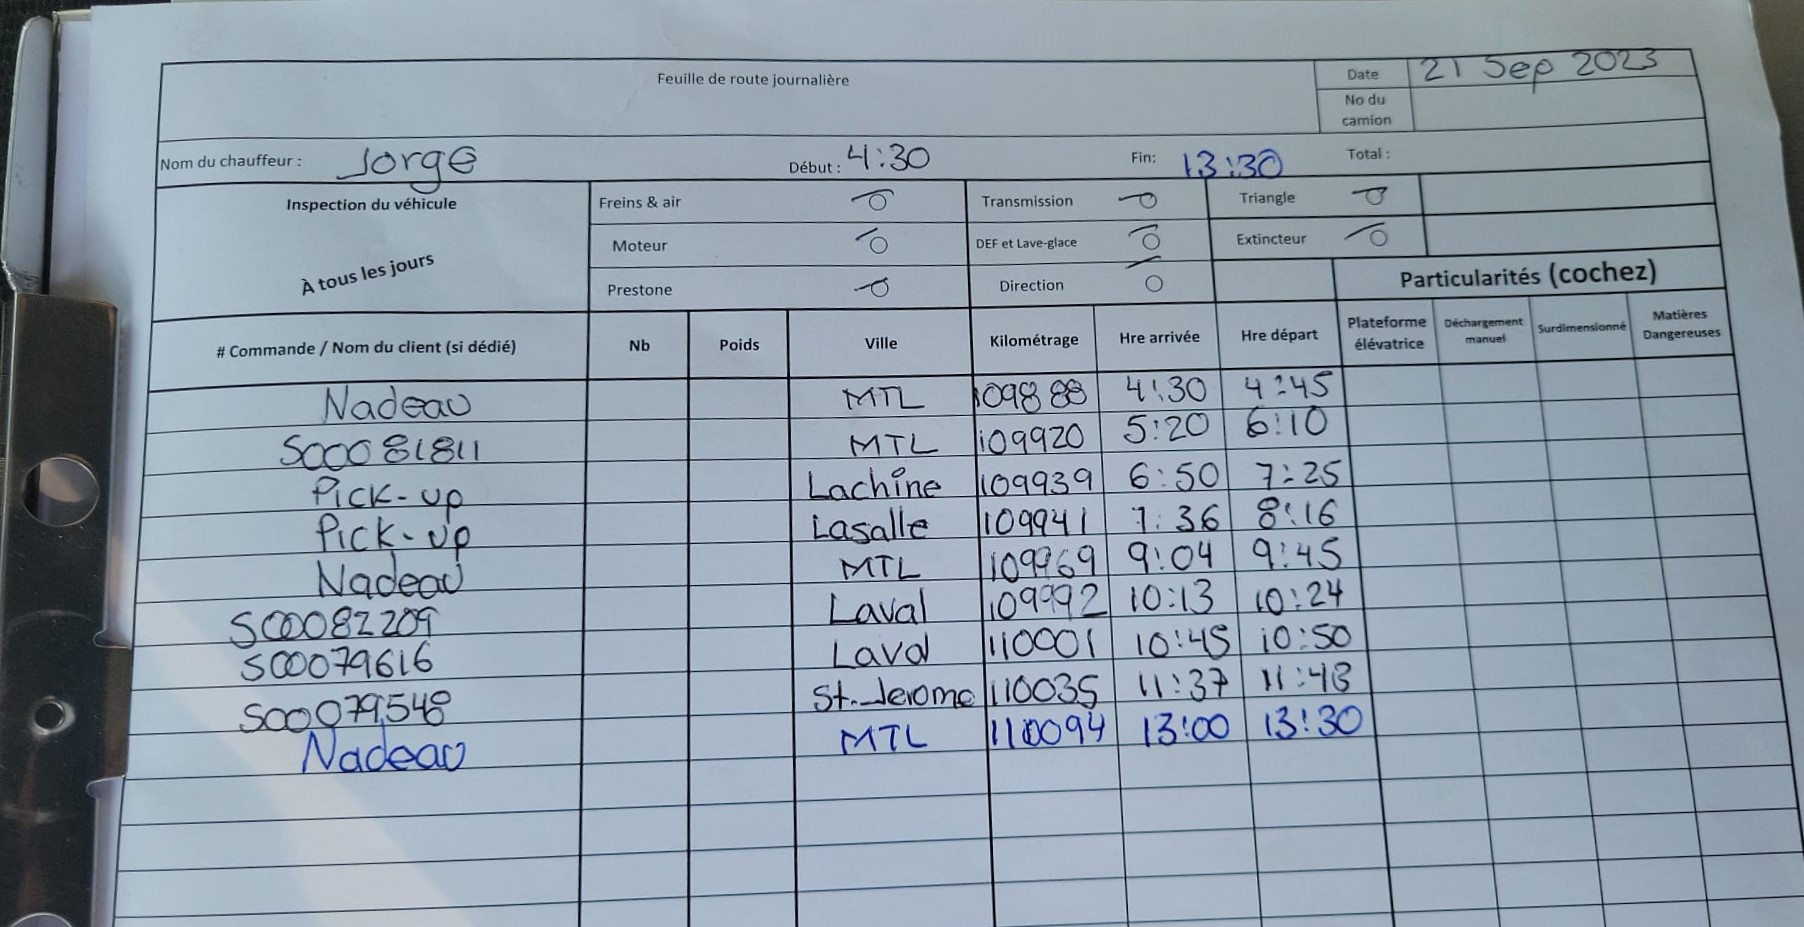 Feuille de route journalière
Date 21 Sep 2023
No du camion
Nom du chauffeur : Jorge Début : 4:30 Fin: 13:30 Total :
Inspection du véhicule Freins & air Transmission Triangle
À tous les jours Moteur DEF et Lave-glace Extincteur
Prestone Direction Particularités (cochez)
# Commande / Nom du client (si dédié) Nb Poids Ville Kilométrage Hre arrivée Hre départ Plateforme élévatrice Déchargement manuel Surdimensionné Matières Dangereuses
Nadeau MTL 109888 4:30 4:45
S00081811 MTL 109920 5:20 6:10
Pick-up Lachine 109939 6:50 7:25
Pick-up Lasalle 109941 7:36 8:16
Nadeau MTL 109969 9:04 9:45
S00082209 Laval 109992 10:13 10:24
S00079616 Laval 110001 10:45 10:50
S00079548 St-Jerome 110035 11:37 11:43
Nadeau MTL 110094 13:00 13:30